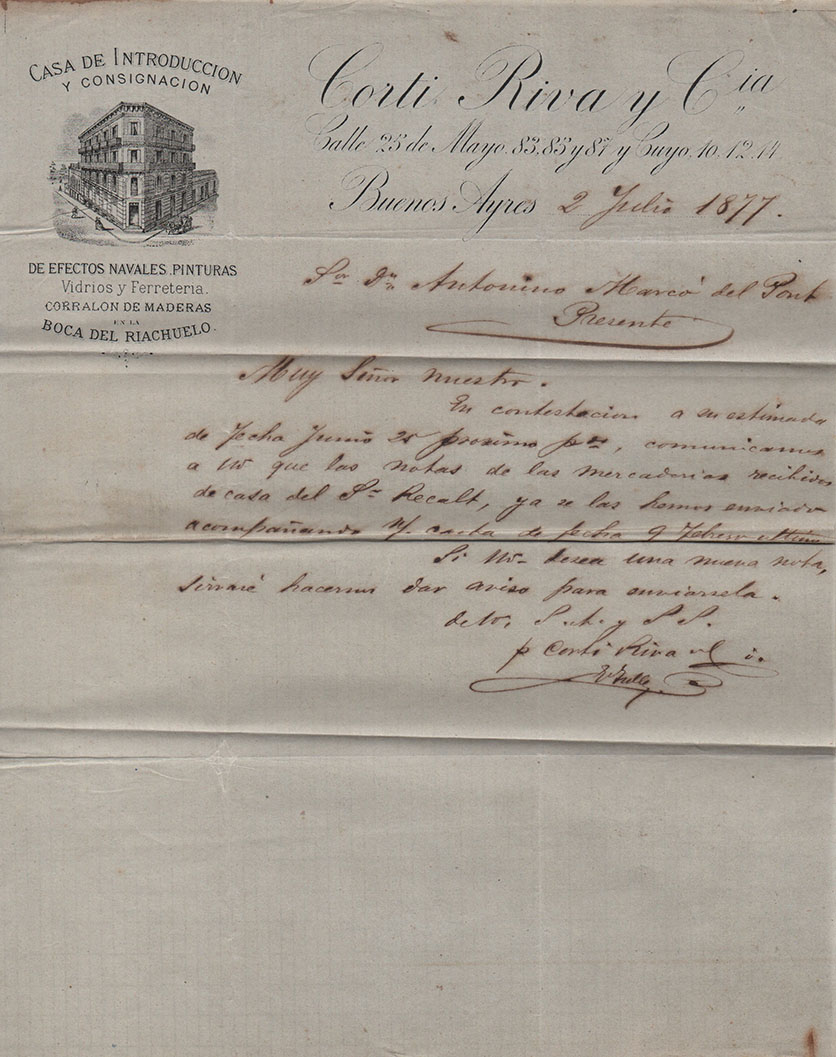 CASA DE INTRODUCCION
Y CONSIGNACION
DE EFECTOS NAVALES, PINTURAS
Vidrios y Ferreteria.
CORRALON DE MADERAS
EN LA
BOCA DEL RIACHUELO.
Corti Riva y Cia
Calle 25 de Mayo, 83, 85 y 87 y Cuyo, 10, 12, 14
Buenos Ayres 2 Julio 1877.
Sor Dn Antonino Marcó del Pont
Presente
Muy Señor nuestro.
En contestacion a su estimada
de fecha Junio 25 proximo pdo, comunicamos
a Vd que las notas de las mercaderias recibidas
de casa del Sr Recalt, ya se las hemos enviado
acompañando n/ carta de fecha 9 febrero ultimo
Si Vd desea una nueva nota,
sirvase hacernos dar aviso para enviarsela.
de Vd, S. A. y S. S.
p Corti Riva y Cia.